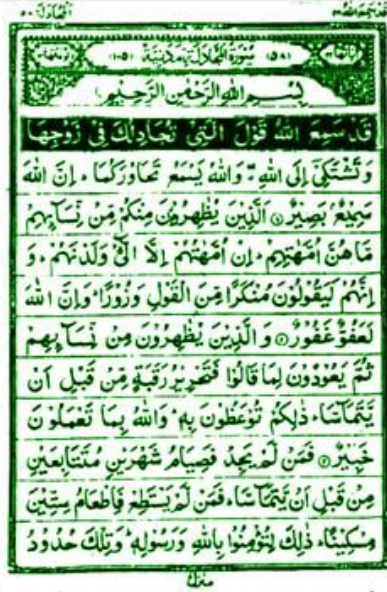 سُوْرَةُ الْمُجَادَلَةِ مَدَنِيَّةٌ (۵۸) (۱۰۵)
بِسْمِ اللهِ الرَّحْمٰنِ الرَّحِيْمِ
قَدْ سَمِعَ اللهُ قَوْلَ الَّتِیْ تُجَادِلُكَ فِیْ زَوْجِهَا
وَتَشْتَكِیْۤ اِلَی اللهِ ۖ وَاللهُ یَسْمَعُ تَحَاوُرَكُمَا ؕ اِنَّ اللهَ
سَمِیْعٌۢ بَصِیْرٌ ۝۱ اَلَّذِیْنَ یُظٰهِرُوْنَ مِنْكُمْ مِّنْ نِّسَآىِٕهِمْ
مَّا هُنَّ اُمَّهٰتِهِمْ ؕ اِنْ اُمَّهٰتُهُمْ اِلَّا الّٰٓـِٔیْ وَلَدْنَهُمْ ؕ وَ
اِنَّهُمْ لَیَقُوْلُوْنَ مُنْكَرًا مِّنَ الْقَوْلِ وَزُوْرًا ؕ وَاِنَّ اللهَ
لَعَفُوٌّ غَفُوْرٌ ۝۲ وَالَّذِیْنَ یُظٰهِرُوْنَ مِنْ نِّسَآىِٕهِمْ
ثُمَّ یَعُوْدُوْنَ لِمَا قَالُوْا فَتَحْرِیْرُ رَقَبَةٍ مِّنْ قَبْلِ اَنْ
یَّتَمَآسَّا ؕ ذٰلِكُمْ تُوْعَظُوْنَ بِهٖ ؕ وَاللهُ بِمَا تَعْمَلُوْنَ
خَبِیْرٌ ۝۳ فَمَنْ لَّمْ یَجِدْ فَصِیَامُ شَهْرَیْنِ مُتَتَابِعَیْنِ
مِنْ قَبْلِ اَنْ یَّتَمَآسَّا ۚ فَمَنْ لَّمْ یَسْتَطِعْ فَاِطْعَامُ سِتِّیْنَ
مِسْكِیْنًا ؕ ذٰلِكَ لِتُؤْمِنُوْا بِاللهِ وَرَسُوْلِهٖ ؕ وَتِلْكَ حُدُوْدُ